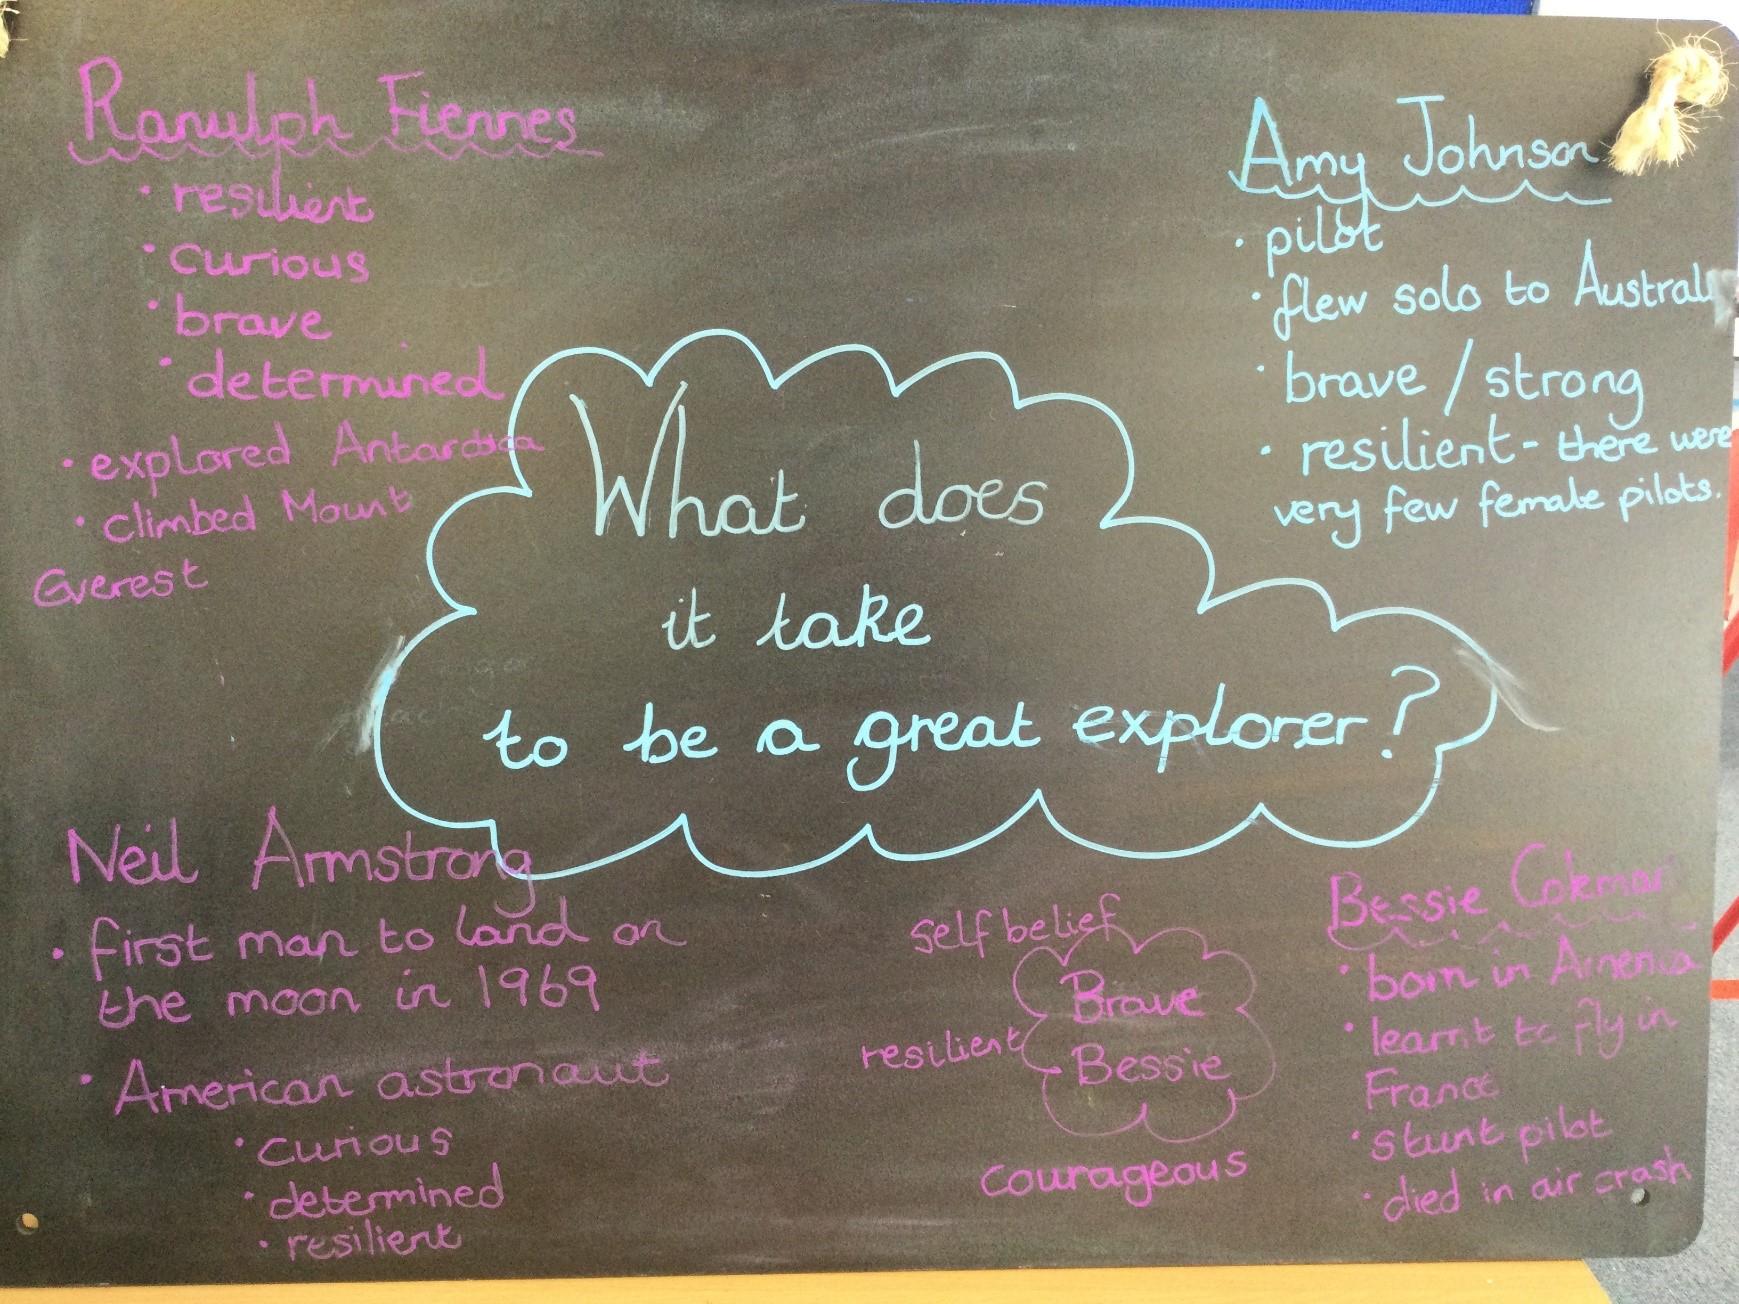 Ranulph Fiennes
• resilient
• curious
• brave
• determined
• explored Antarctica
• climbed Mount
Everest
Amy Johnson
• pilot
• flew solo to Austral
• brave / strong
• resilient - there were
very few female pilots.
What does
it take
to be a great explorer?
Neil Armstrong
• first man to land on
the moon in 1969
• American astronaut
• curious
• determined
• resilient
self belief
Brave
resilient
Bessie
courageous
Bessie Coleman
• born in America
• learnt to fly in
France
• stunt pilot
• died in air crash